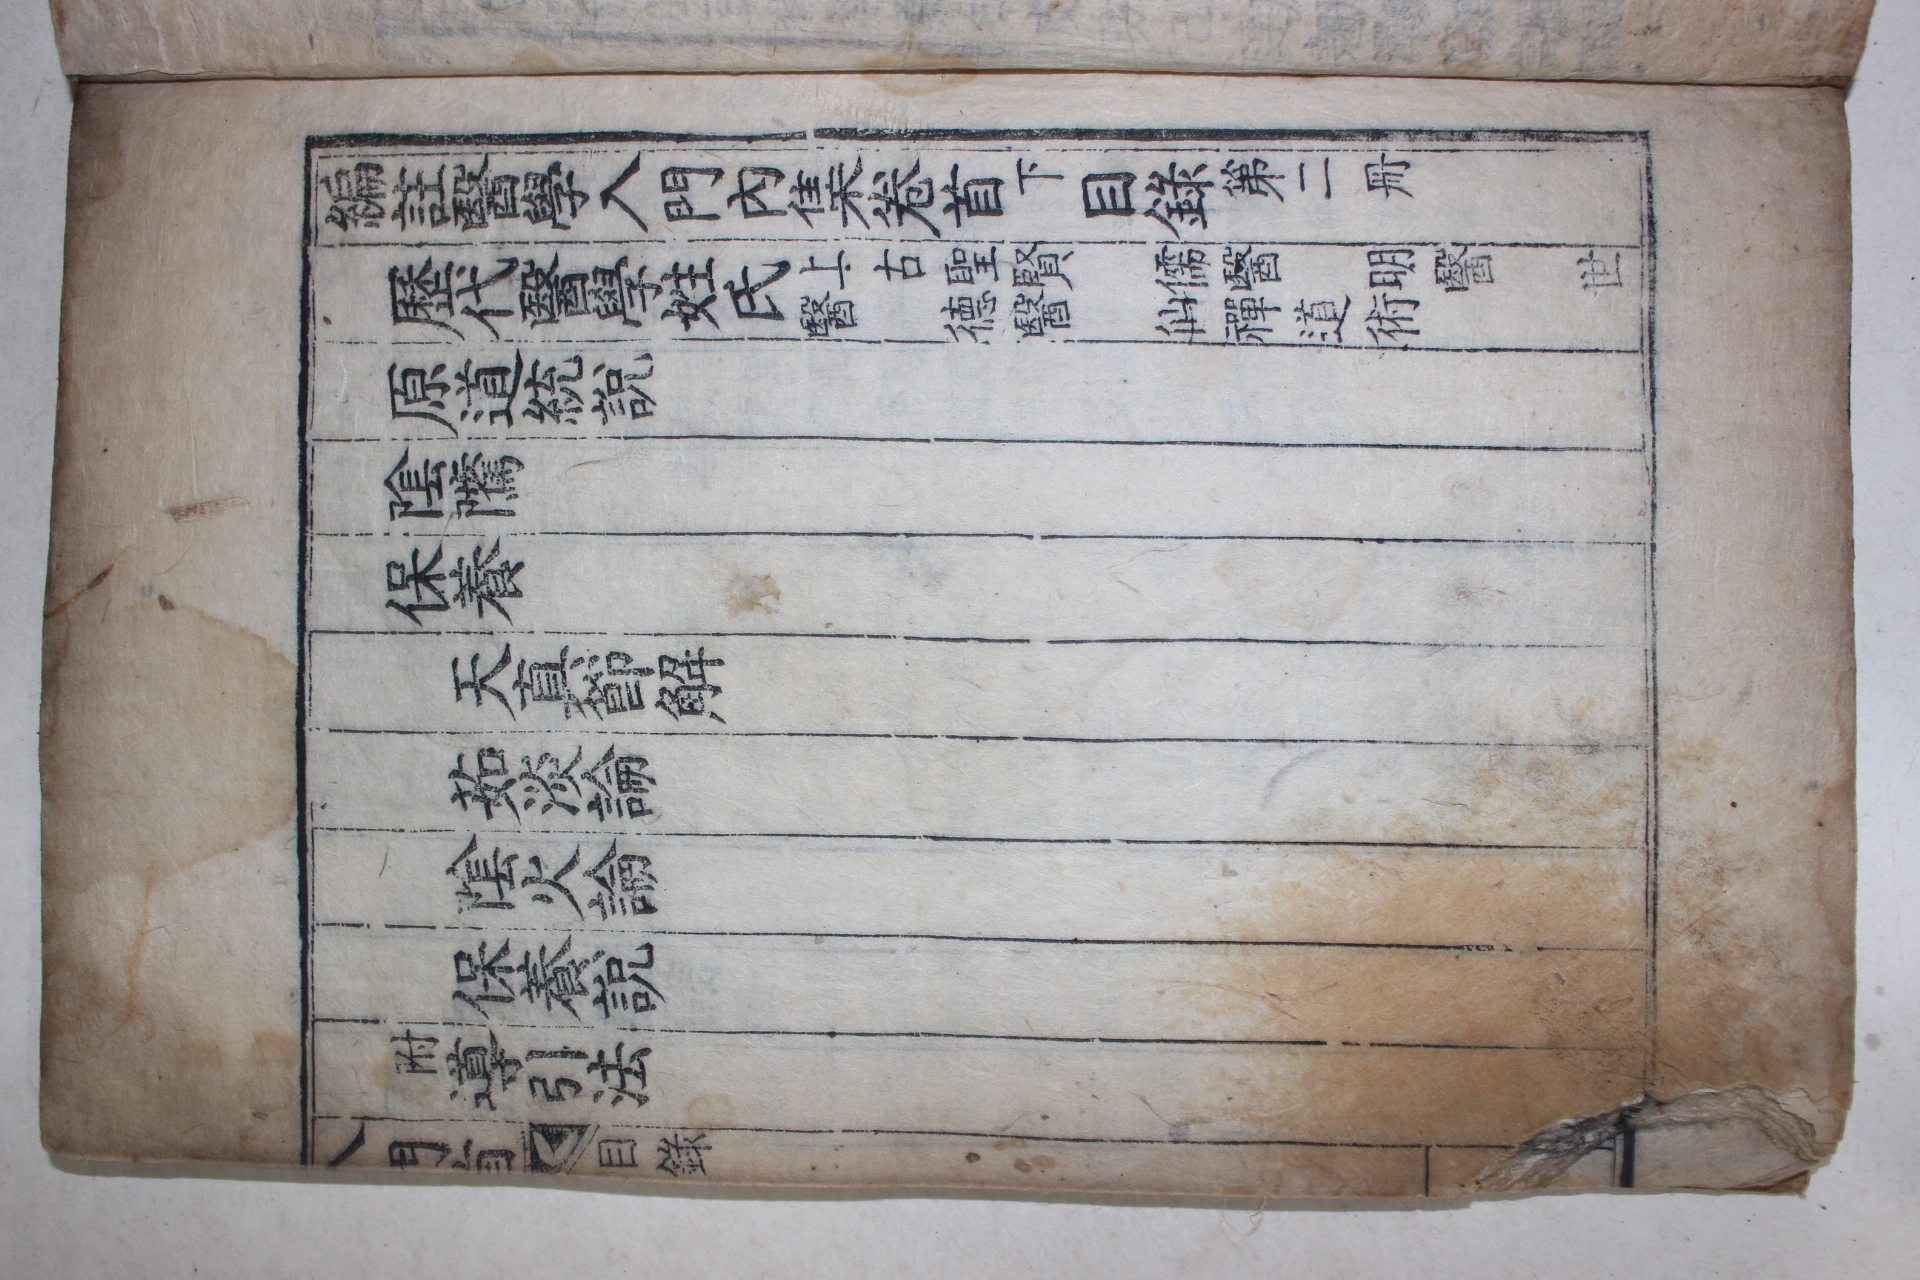 編註醫學入門內集卷首下目錄第二冊
歷代醫學姓氏 上古聖賢 儒醫 明醫 世
醫 德醫 仙禪道術
原道統說
陰隲
保養
天真節解
茹淡論
陰火論
保養說
附導引法
入門首 目錄